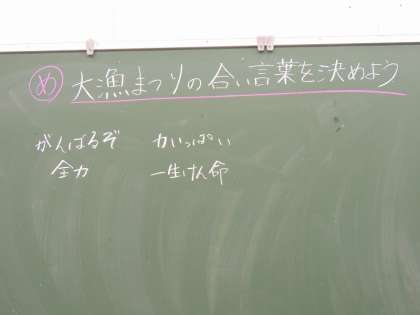 め 大漁まつりの合い言葉を決めよう
がんばるぞ 力いっぱい
全力 一生けん命